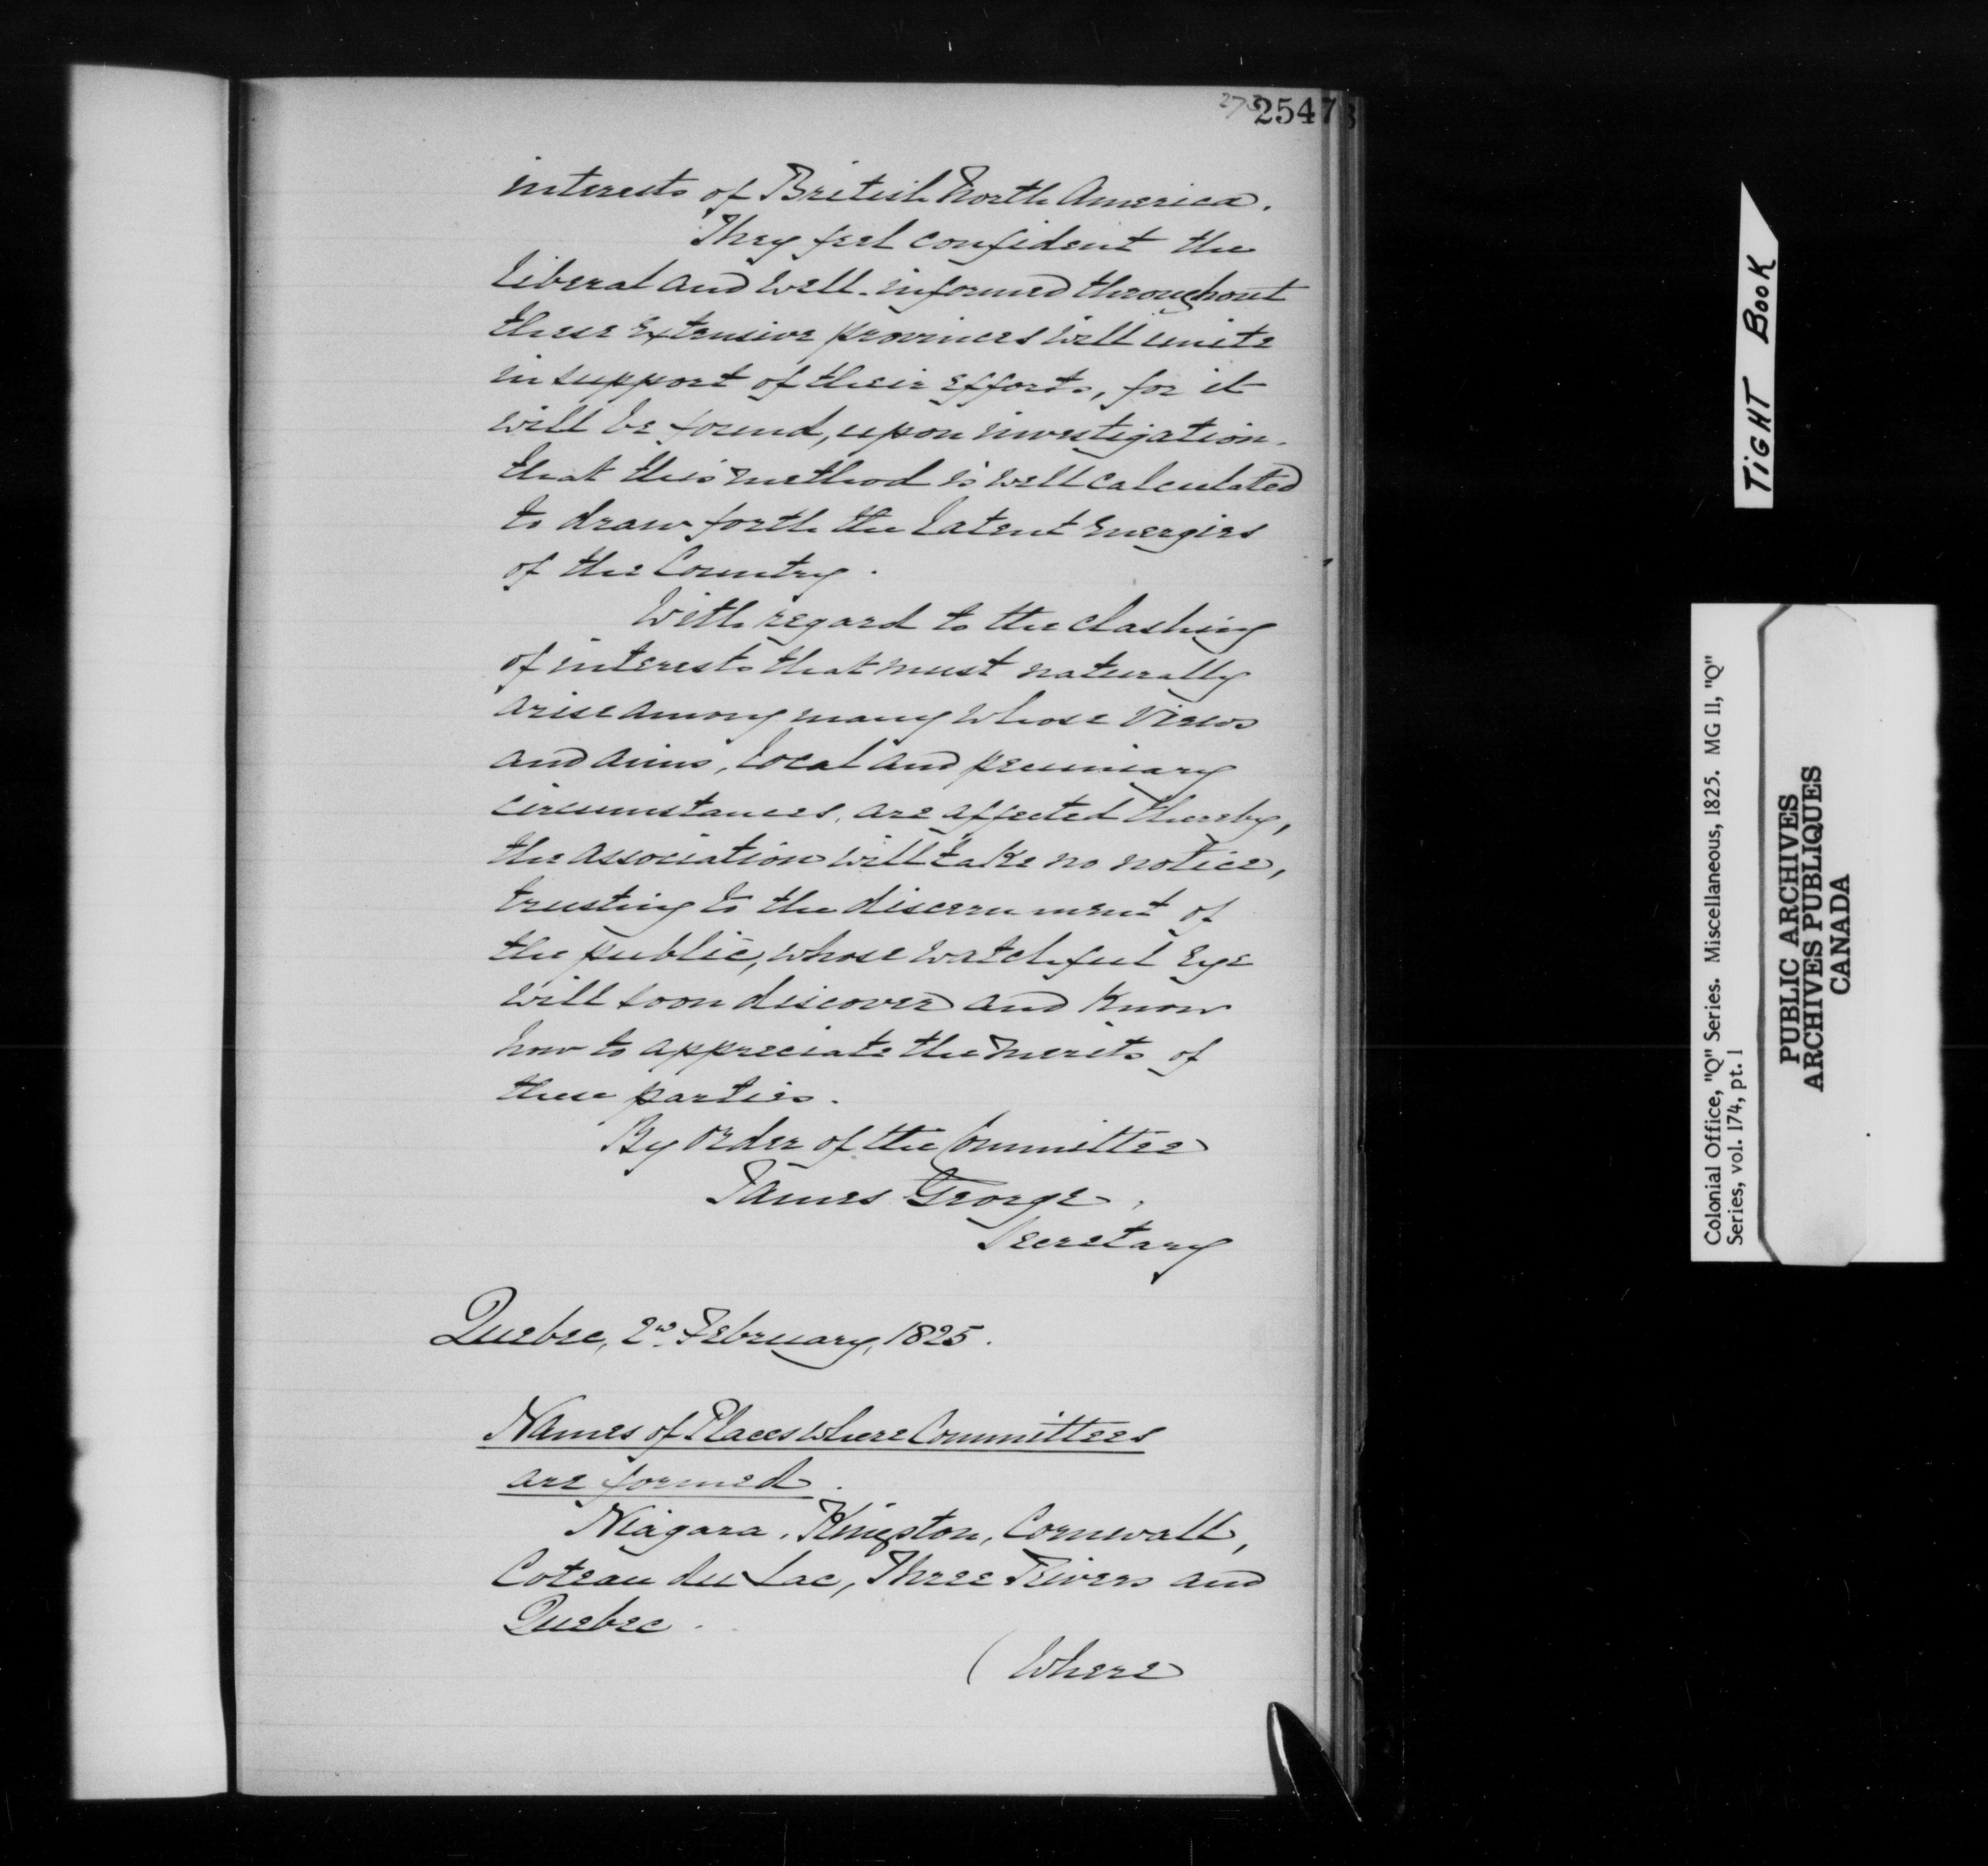 2547
interests of British North America.
They feel confident the
liberal and well-informed throughout
these extensive provinces will unite
in support of their efforts, for it
will be found, upon investigation.
that this method is well calculated
to draw forth the latent energies
of the Country.
With regard to the clashing
of interests that must naturally
arise among many whose views
and aims, local and pecuniary
circumstances, are affected thereby,
the association will take no notice,
trusting to the discernment of
the public, whose watchful eye
will soon discover and know
how to appreciate the merits of
these parties.
By order of the Committee
James George.
Secretary
Quebec, 2nd February, 1825.
Names of Places where Committees
are formed.
Niagara, Kingston, Cornwall,
Coteau du Lac, Three Rivers and
Quebec.
(Where
TIGHT BOOK
Colonial Office, "Q" Series. Miscellaneous, 1825. MG 11, "Q"
Series, vol. 174, pt. 1
PUBLIC ARCHIVES
ARCHIVES PUBLIQUES
CANADA